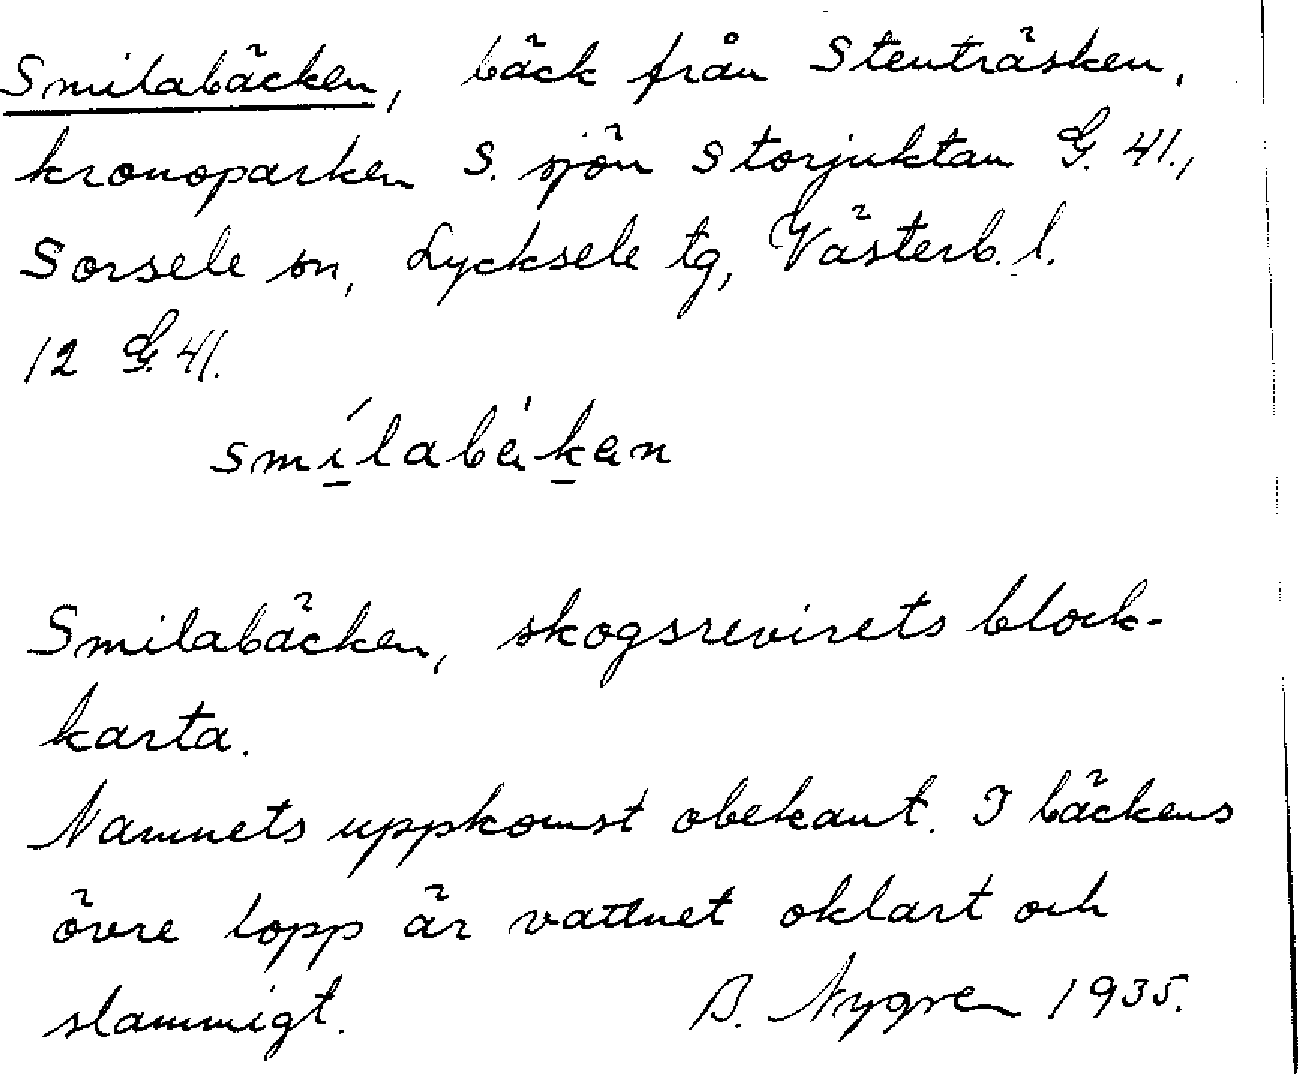 Smilabäcken, bäck från Stenträsken,
kronoparken S. sjön Storjuktan G. 41.,
Sorsele sn, Lycksele tg, Västerb. l.
12 G. 41.
smílabä̀kan
Smilabäcken, skogsrevirets block-
karta.
Namnets uppkomst obekant. I bäckens
övre lopp är vattnet oklart och
slammigt. B. Nygren 1935.